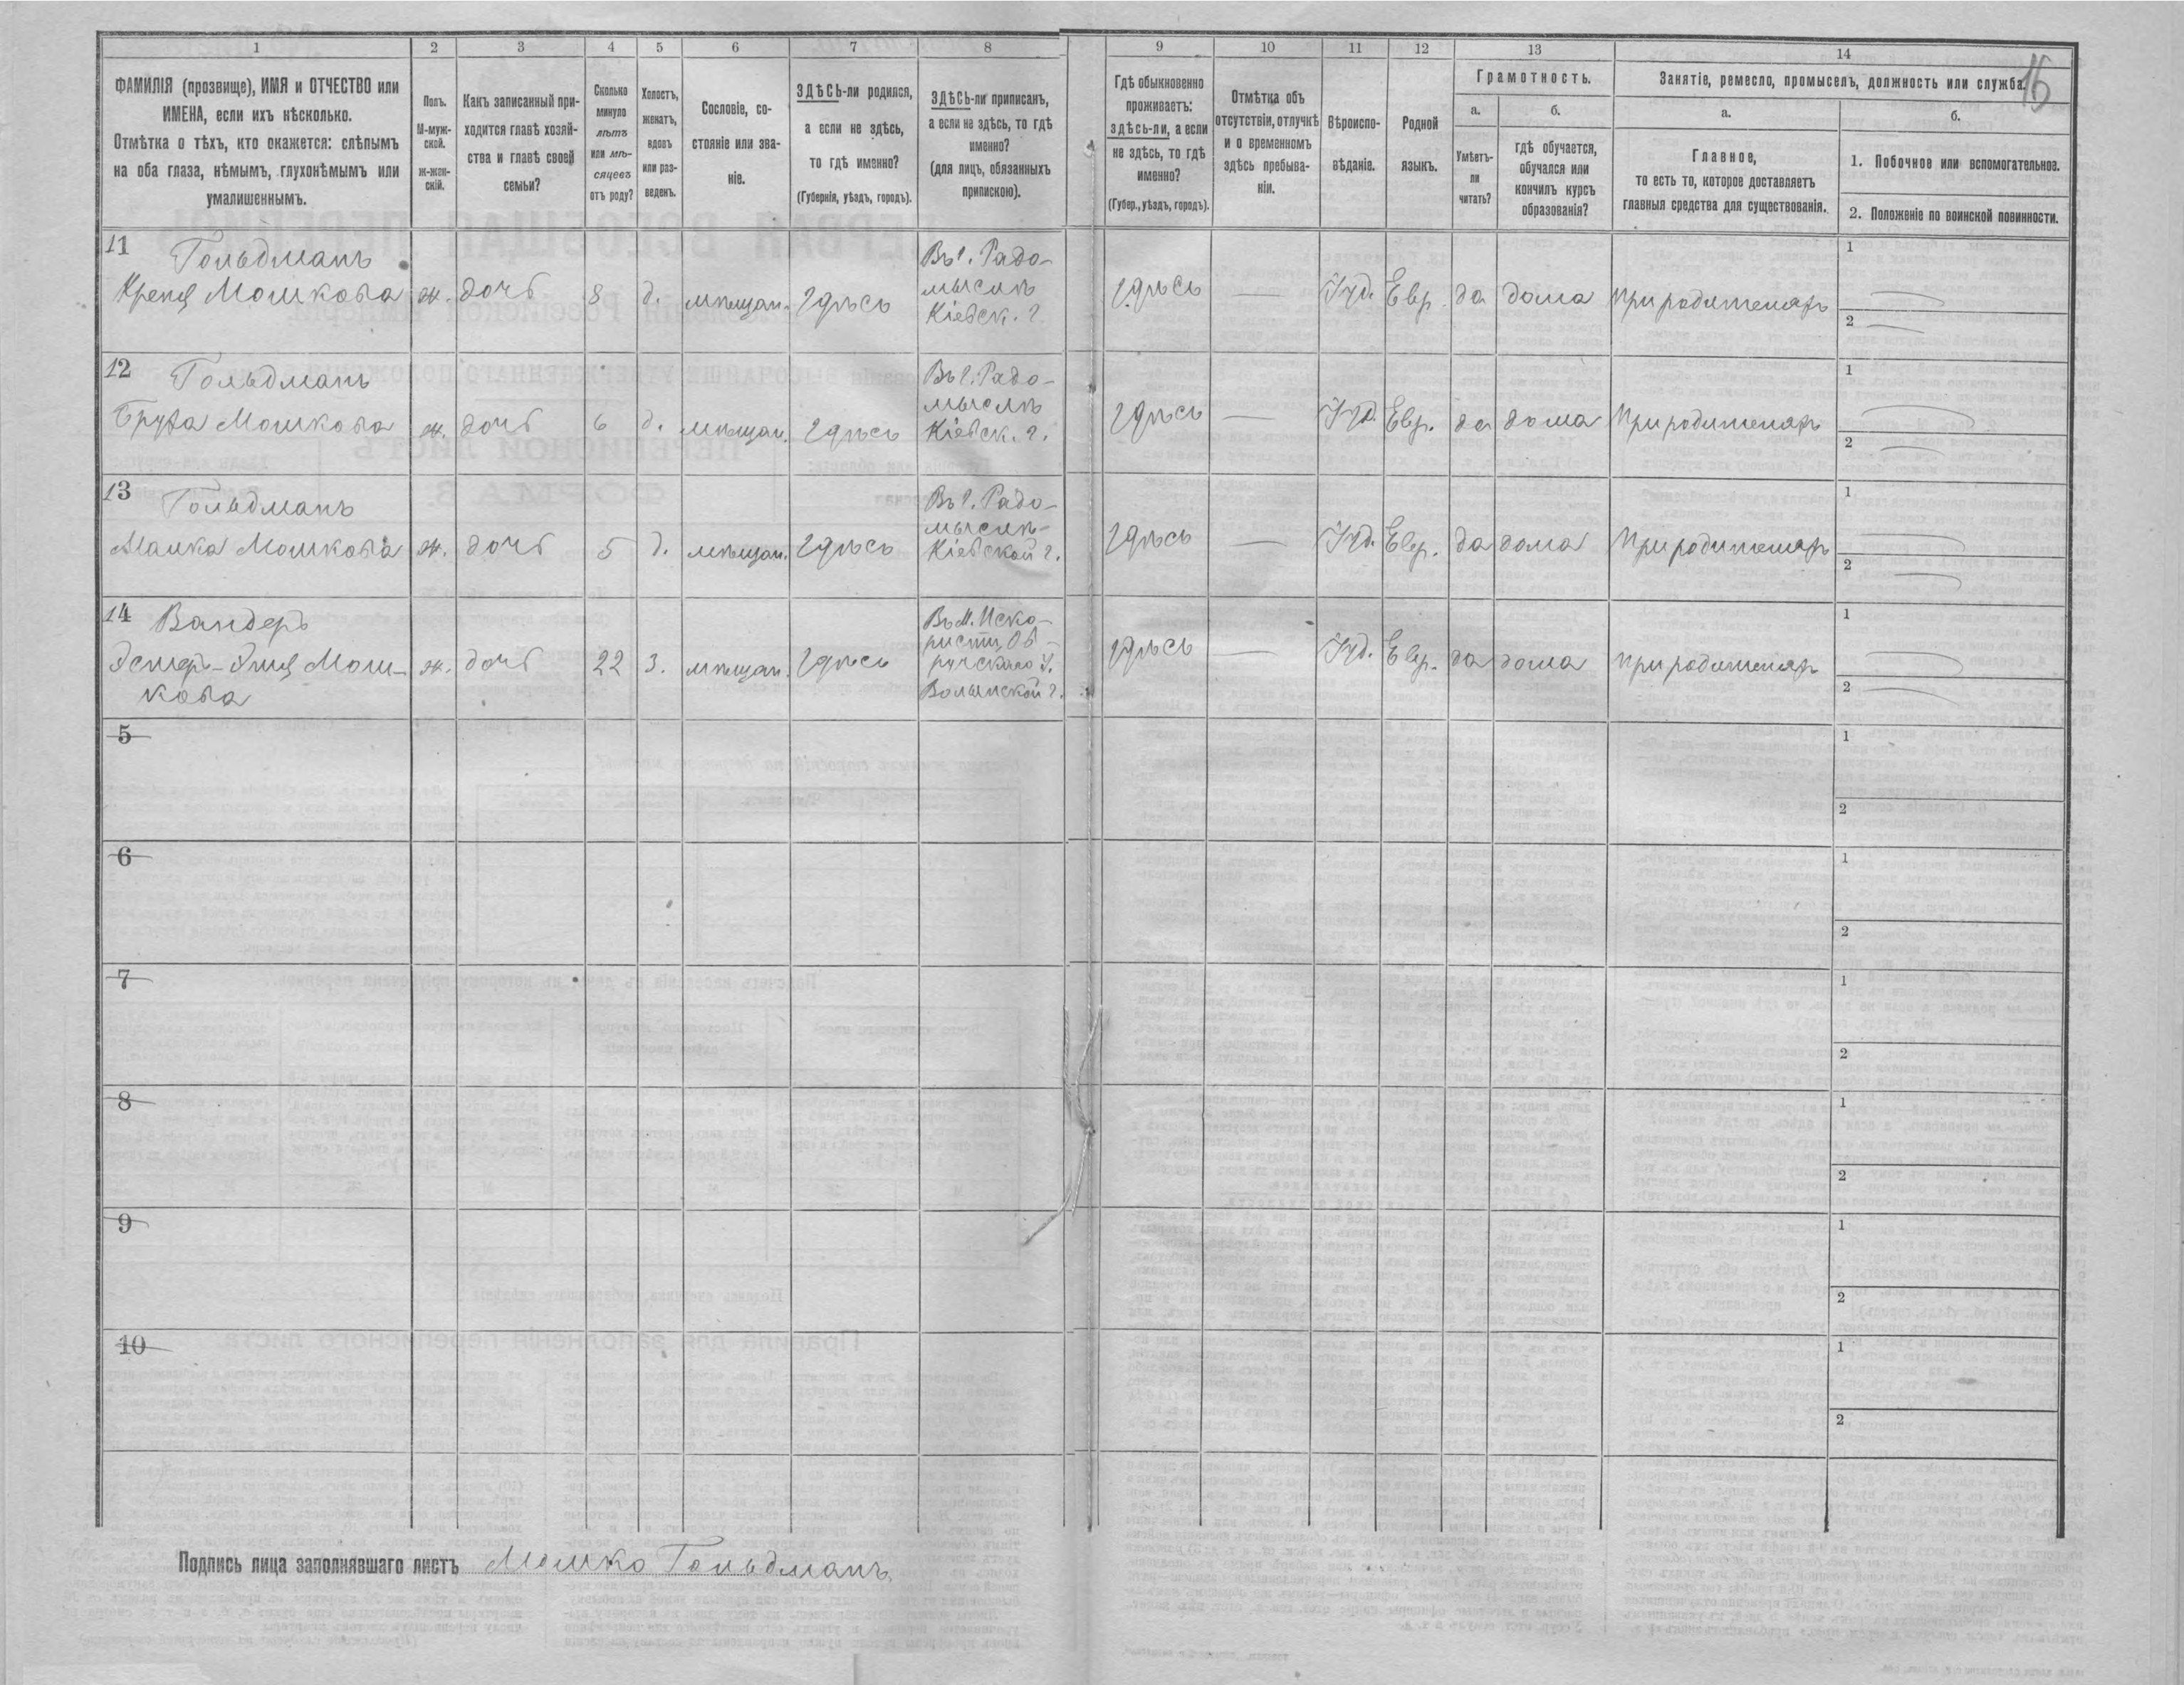 1 2 3 4 5 6 7 8 9 10 11 12 13 14
16
ФАМИЛІЯ (прозвище), ИМЯ и ОТЧЕСТВО или
ИМЕНА, если ихъ нѣсколько.
Отмѣтка о тѣхъ, кто окажется: слѣпымъ
на оба глаза, нѣмымъ, глухонѣмымъ или
умалишеннымъ.
Полъ.
М-муж-
ской.
Ж-жен-
скій.
Какъ записанный при-
ходится главѣ хозяй-
ства и главѣ своей
семьи?
Сколько
минуло
лѣтъ
или мѣ-
сяцевъ
отъ роду?
Холостъ,
женатъ,
вдовъ
или раз-
веденъ.
Сословіе, со-
стояніе или зва-
ніе.
ЗДѢСЬ-ли родился,
а если не здѣсь,
то гдѣ именно?
(Губернія, уѣздъ, городъ).
ЗДѢСЬ-ли приписанъ,
а если не здѣсь, то гдѣ
именно?
(для лицъ, обязанныхъ
припискою).
Гдѣ обыкновенно
проживаетъ:
здѣсь-ли, а если
не здѣсь, то гдѣ
именно?
(Губер., уѣздъ, городъ).
Отмѣтка объ
отсутствіи, отлучкѣ
и о временномъ
здѣсь пребыва-
ніи.
Вѣроиспо-
вѣданіе.
Родной
языкъ.
Грамотность.
а. б.
Умѣетъ-
ли
читать?
гдѣ обучается,
обучался или
кончилъ курсъ
образованія?
Занятіе, ремесло, промыселъ, должность или служба.
а. б.
Главное,
то есть то, которое доставляетъ
главныя средства для существованія.
1. Побочное или вспомогательное.
2. Положеніе по воинской повинности.
11 Гольдманъ
Крейця Мошкова ж. дочь 8 д. мѣщан. здѣсь
Въ г. Радо-
мыслѣ
Кіевск. г.
здѣсь — Іуд. Евр. да дома при родителяхъ
1 —
2 —
12 Гольдманъ
Бруха Мошкова ж. дочь 6 д. мѣщан. здѣсь
Въ г. Радо-
мыслѣ
Кіевск. г.
здѣсь — Іуд. Евр. да дома При родителяхъ
1 —
2 —
13 Гольдманъ
Малка Мошкова ж. дочь 5 д. мѣщан. здѣсь
Въ г. Радо-
мыслѣ
Кіевской г.
здѣсь — Іуд. Евр. да дома При родителяхъ
1 —
2 —
14 Вандеръ
Эстер- Мош-
кова ж. дочь 22 з. мѣщан. здѣсь
Въ м. Иско-
рости, Ов-
ручскаго у.
Волынской г.
здѣсь — Іуд. Евр. да дома при родителяхъ
1 —
2 —
5 1
2
6 1
2
7 1
2
8 1
2
9 1
2
10 1
2
Подпись лица заполнявшаго листъ Мошко Гольдманъ